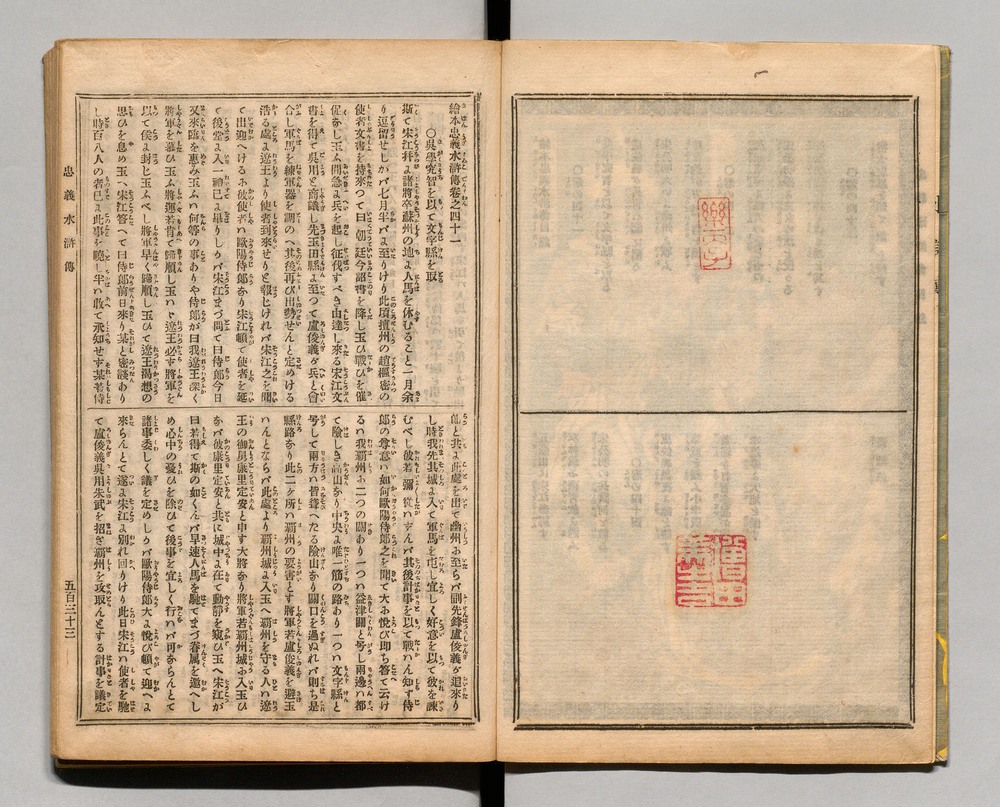 繪本忠義水滸傳卷之四十一
〇吳學究智を以て文字縣を取
斯て宋江幷に諸將卒蘇州の地に人馬を休むること一月余
り逗留せしが七月半に至りけり此頃擅州の趙樞密の
使者文書を持來つて曰く朝廷今詔書を降し玉ひ戰ひを催
促なし玉ふ間急に兵を起し征伐すべき由達し來る宋江文
書を得て吳用と商議し先玉田縣に至つて盧俊義が兵と會
合し軍馬を練軍器を調のへ其後再び出勢せんと定めける
浩る處に遼王より使者到來せりと報じければ宋江之を聞
て出迎へけるに彼使者は歐陽侍郎なり宋江頓て使者を延
て後堂に入一禮已に畢りしかば宋江まづ問て曰侍郎今日
又來臨を惠み玉ふは何等の事ありや侍郎が曰我遼王深く
將軍を慕ひ玉ふ將軍若肯て歸順し玉はゞ遼王必ず將軍を
以て侯に封じ玉ふべし將軍早く歸順し玉ひて遼王渴想の
思ひを息め玉へ宋江答へて曰侍郎前日來り某と密談あり
し時百八人の者已に此事を曉し半は敢て承知せず某若侍
郎と共に此處を出て幽州に至らば副先鋒盧俊義が追來り
し時我先其城に入て軍馬を屯し宜しく好意を以て彼を諫
むべし彼若彌從はずんば其後計事を以て戰はん知ず侍
郎の尊意は如何歐陽侍郎之を聞て大に悅び卽ち答て云け
るは我覇州に二つの關あり一つは益津關と号し兩邊は都
て險しき高山なり中央に唯一筋の路あり一つは文字縣と
号して兩方は皆聳へたる險山なり關口を過ぬれば則ち是
縣路なり此二ヶ所は覇州の要害とす將軍若盧俊義を避玉
はんとならば此處より覇州城に入玉へ覇州を守る人は遼
王の御舅康里定安と申す大將なり將軍若覇州城に入玉ひ
なば彼康里定安と共に城中に在て動靜を窺ひ玉へ宋江が
曰若得て斯の如くんば早速人馬を馳てまづ眷属を邀へし
め心中の憂ひを除ひて後事を宜しく行はゞ可ならんとて
諸事委しく議を定めしかば歐陽侍郎大に悅び頓て迎へに
來らんとて遂に宋江に別れ回りけり此日宋江は使者を馳
て盧俊義吳用朱武を招ぎ覇州を攻取んとする計事を議定
忠義水滸傳
五百三十三